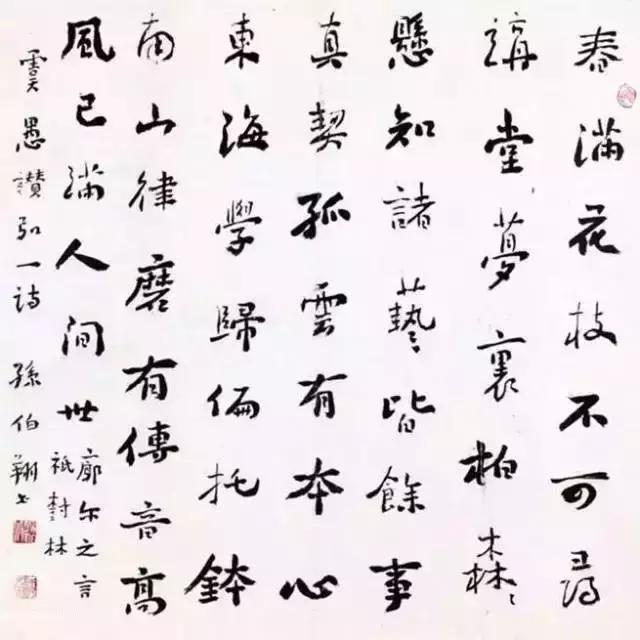 春滿花枝不可尋
講堂夢裏柏森〻
懸知諸藝〻皆餘事
真契孤雲有本心
東海學歸偏托鉢
南山律磨有傳音高
風已滿人间世廓尔之言
祇樹林
虞愚讚弘一诗 孫伯翔书